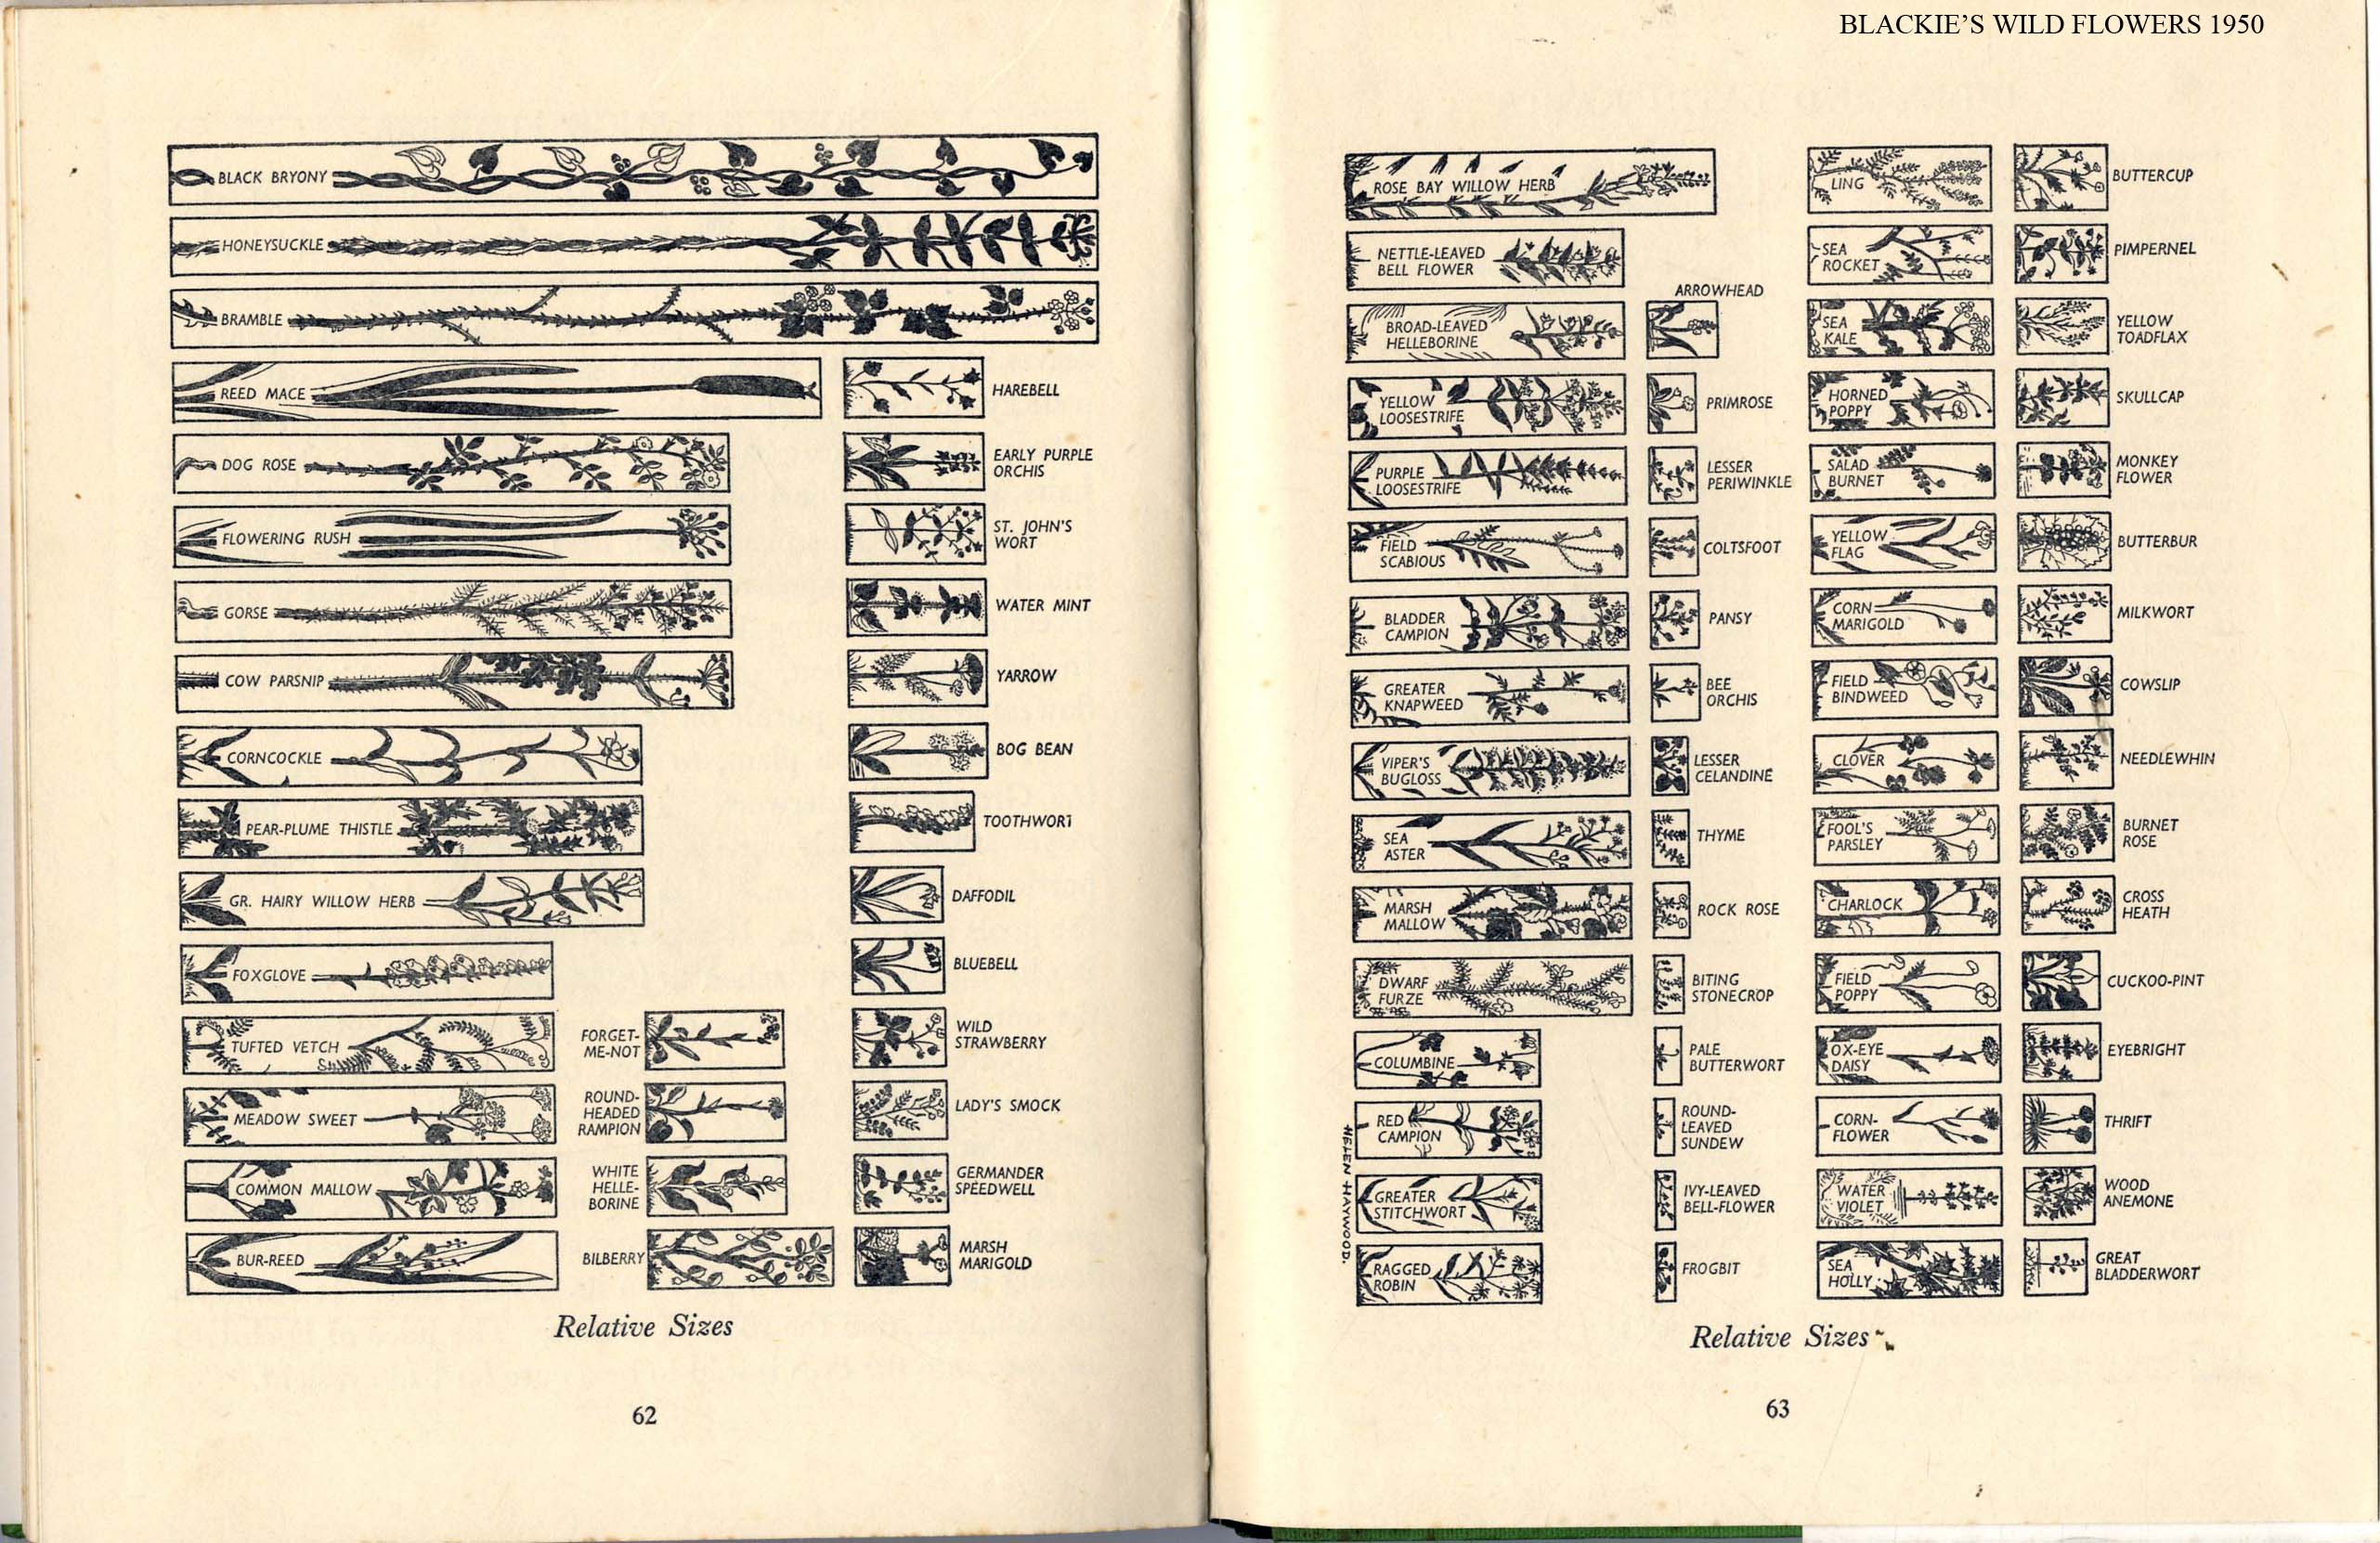 BLACKIE'S WILD FLOWERS 1950
BLACK BRYONY
HONEYSUCKLE
BRAMBLE
REED MACE
DOG ROSE
FLOWERING RUSH
GORSE
COW PARSNIP
CORNCOCKLE
PEAR-PLUME THISTLE
GR. HAIRY WILLOW HERB
FOXGLOVE
TUFTED VETCH
MEADOW SWEET
COMMON MALLOW
BUR-REED
FORGET-
ME-NOT
ROUND-
HEADED
RAMPION
WHITE
HELLE-
BORINE
BILBERRY
HAREBELL
EARLY PURPLE
ORCHIS
ST. JOHN'S
WORT
WATER MINT
YARROW
BOG BEAN
TOOTHWORT
DAFFODIL
BLUEBELL
WILD
STRAWBERRY
LADY'S SMOCK
GERMANDER
SPEEDWELL
MARSH
MARIGOLD
Relative Sizes
62
ROSE BAY WILLOW HERB
NETTLE-LEAVED
BELL FLOWER
BROAD-LEAVED
HELLEBORINE
YELLOW
LOOSESTRIFE
PURPLE
LOOSESTRIFE
FIELD
SCABIOUS
BLADDER
CAMPION
GREATER
KNAPWEED
VIPER'S
BUGLOSS
SEA
ASTER
MARSH
MALLOW
DWARF
FURZE
COLUMBINE
RED
CAMPION
GREATER
STITCHWORT
RAGGED
ROBIN
HELEN HAYWOOD.
ARROWHEAD
PRIMROSE
LESSER
PERIWINKLE
COLTSFOOT
PANSY
BEE
ORCHIS
LESSER
CELANDINE
THYME
ROCK ROSE
BITING
STONECROP
PALE
BUTTERWORT
ROUND-
LEAVED
SUNDEW
IVY-LEAVED
BELL-FLOWER
FROGBIT
LING
SEA
ROCKET
SEA
KALE
HORNED
POPPY
SALAD
BURNET
YELLOW
FLAG
CORN
MARIGOLD
FIELD
BINDWEED
CLOVER
FOOL'S
PARSLEY
CHARLOCK
FIELD
POPPY
OX-EYE
DAISY
CORN-
FLOWER
WATER
VIOLET
SEA
HOLLY
BUTTERCUP
PIMPERNEL
YELLOW
TOADFLAX
SKULLCAP
MONKEY
FLOWER
BUTTERBUR
MILKWORT
COWSLIP
NEEDLEWHIN
BURNET
ROSE
CROSS
HEATH
CUCKOO-PINT
EYEBRIGHT
THRIFT
WOOD
ANEMONE
GREAT
BLADDERWORT
Relative Sizes
63